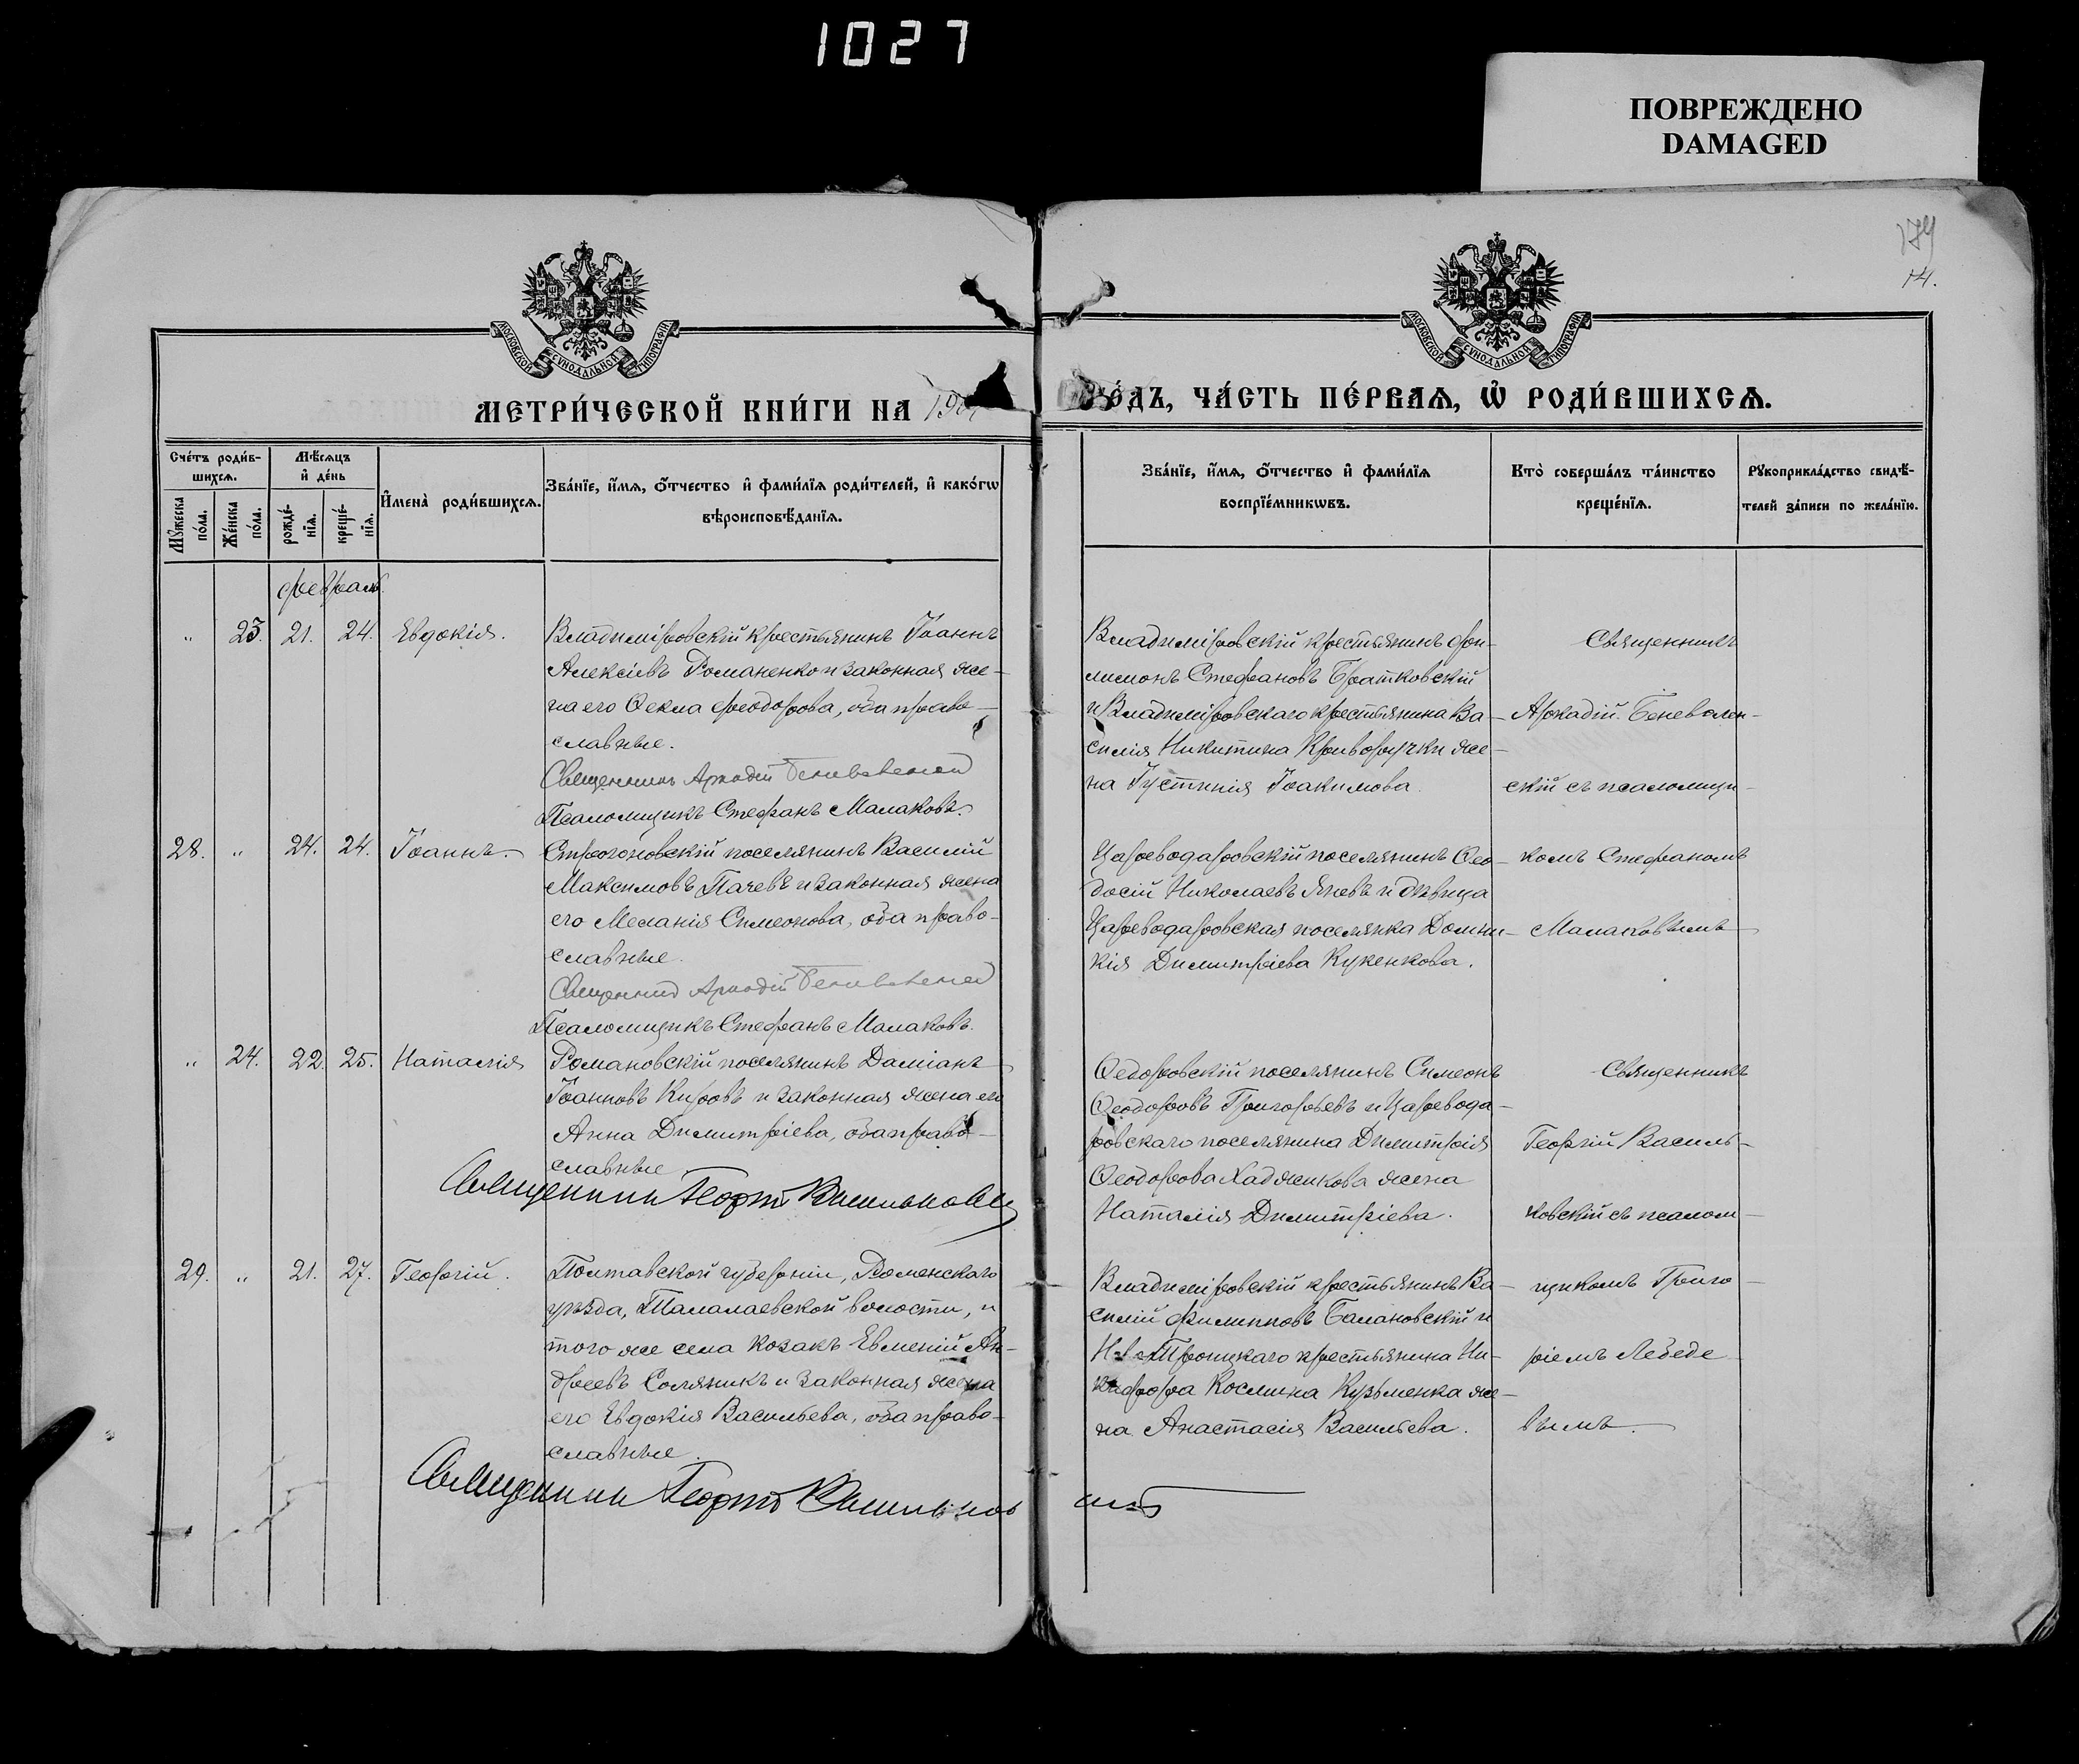 1027
ПОВРЕЖДЕНО
DAMAGED
179
14.
МОСКОВСКОЙ СѴНОДАЛЬНОЙ ТИПОГРАФІИ
МОСКОВСКОЙ СѴНОДАЛЬНОЙ ТИПОГРАФІИ
МЕТРИ́ЧЕСКОЙ КНИ́ГИ НА 190
ГО́ДЪ, ЧА́СТЬ ПЕ́РВАѦ, Ѡ҆ РОДИ́ВШИХСѦ.
Сче́тъ роди́в-
шихсѧ.
Мꙋ́жеска по́ла.
Же́нска по́ла.
Мѣ́сѧцъ
и҆ де́нь
рожде́-нїѧ.
креще́-нїѧ.
И҆мена̀ роди́вшихсѧ.
Зва́нїе, и҆́мѧ, ѻ҆́тчество и҆ фами́лїѧ роди́телей, и҆ како́гѡ
вѣроисповѣ́данїѧ.
Зва́нїе, и҆́мѧ, ѻ҆́тчество и҆ фами́лїѧ
воспрїе́мникѡвъ.
Кто̀ соверша́лъ та́инство
креще́нїѧ.
Рꙋкоприкла́дство свидѣ́-
телей за́писи по жела́нїю.
февраль.
" 23. 21. 24. Евдокія.
Владиміровскій крестьянинъ Іоаннъ
Алексіевъ Романенко и законная же-
на его Ѳекла Феодорова, оба право-
славные.
Священникъ Аркадій Беневоленскій
Псаломщикъ Стефанъ Малаковъ.
Владиміровскій крестьянинъ Фи-
лимонъ Стефановъ Братковскій
и Владиміровскаго крестьянина Ва-
силія Никитина Криворучки же-
на Іустинія Іоакимова.
Священникъ
Аркадій Беневолен-
скій съ псаломщи-
28. " 24. 24. Іоаннъ.
Строгоновскій поселянинъ Василій
Максимовъ Пачевъ и законная жена
его Меланія Симеонова, оба право-
славные.
Священникъ Аркадій Беневоленскій
Псаломщикъ Стефанъ Малаковъ.
Цареводаровскій поселянинъ Ѳео-
досій Николаевъ Яневъ и дѣвица
Цареводаровская поселянка Домни-
кія Димитріева Кукенкова.
комъ Стефаномъ
Малаковымъ
" 24. 22. 25. Наталія
Романовскій поселянинъ Даміанъ
Іоанновъ Кировъ и законная жена его
Анна Димитріева, оба право-
славные
Священникъ Георгій Васильковскій
Ѳедоровскій поселянинъ Симеонъ
Ѳеодоровъ Григорьевъ и Царевода-
ровскаго поселянина Димитрія
Ѳеодорова Хаджикова жена
Наталія Димитріева.
Священникъ
Георгій Василь-
ковскій съ псалом-
29. " 21. 27. Георгій.
Полтавской губерніи, Роменскаго
уѣзда, Талалаевской волости, и
того же села козакъ Евменій Ан-
дреевъ Соляникъ и законная жена
его Евдокія Васильева, оба право-
славные.
Священникъ Георгій Васильков
скій
Владиміровскій крестьянинъ Ва-
силій Филипповъ Балановскій и
Ново-Троицкаго крестьянина Ни-
кифора Космина Кузьменка же-
на Анастасія Васильева.
щикомъ Григо-
ріемъ Лебеде-
вымъ.